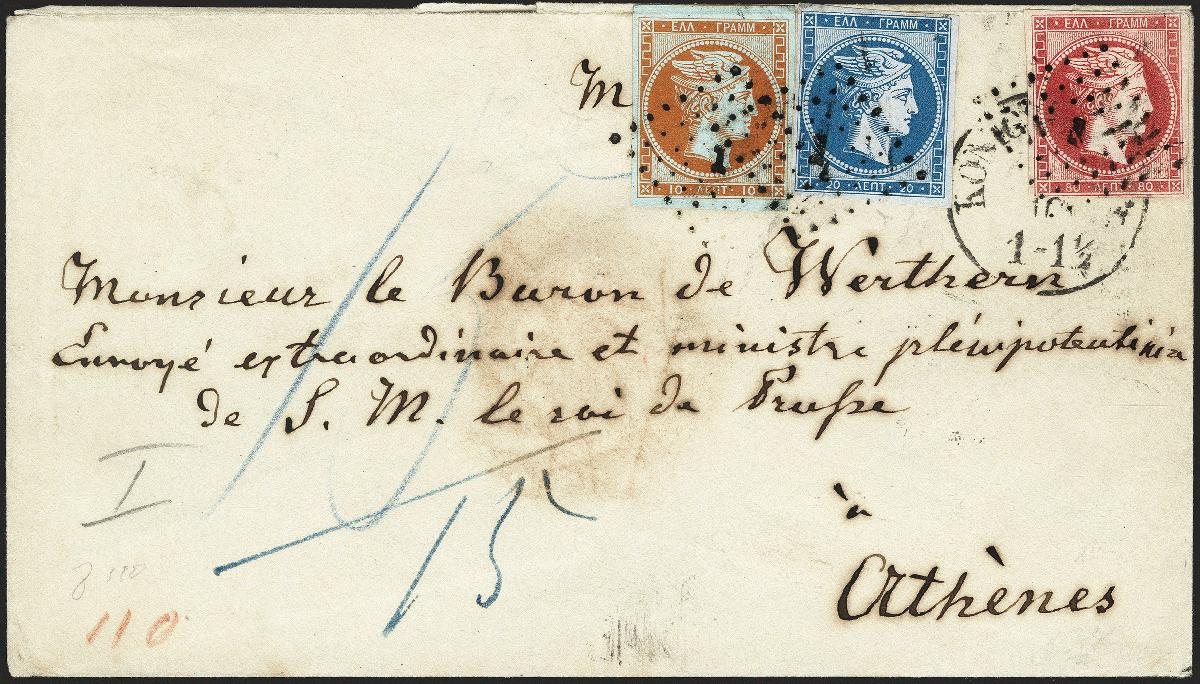 ΕΛΛ ΓΡΑΜΜ
10 ΛΕΠΤ 10
1
ΕΛΛ ΓΡΑΜΜ
20 ΛΕΠΤ 20
1
ΕΛΛ ΓΡΑΜΜ
80 ΛΕΠΤ 80
1-1½
M
Monsieur le Baron de Werthern
Envoyé extraordinaire et ministre plénipotentiaire
de S. M. le roi de Prusse
à
Athènes
I
15
110